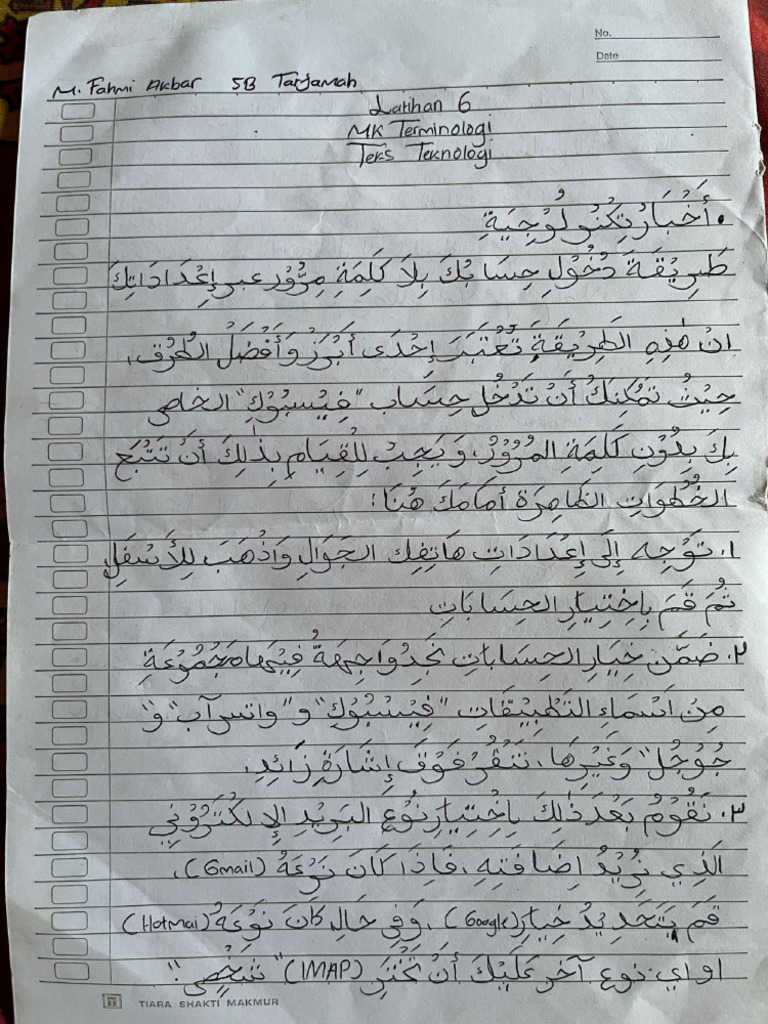 No.
Date
M. Fahmi Akbar 5B Tarjamah
Latihan 6
MK Terminologi
Teks Teknologi
• أَخْبَارُ تِكْنُولُوْجِيَةِ
طَرِيْقَةَ دُخُوْلِ حِسَابُكَ بِلاَ كَلِمَةِ مِرُّوْر عبر إِعْدَادَاتِكَ
انْ هٰذِهِ الطَرِيْقَةِ تُعْتَبَرَ إِحْدَى أَبْرَزُ وَأَفْضَلُ الطُرُق،
حِيْثُ تمْكِنُكَ أَنْ تَدْخُل حِسَاب "فِيْسبُوْكِ" الخاص
بِكَ بِدُوْنِ كَلِمَةِ المُرُوْرْ، وَيَجِبْ لِلْقِيَامِ بِذٰلِكَ أَنْ تَتْبَعَ
الخُطُوَاتِ الظَاهِرَة أمَامَكَ هُنَا:
١. تَوَّجِه إِلَى إِعْدَادَاتِ هَاتِفِك الجَوَالِ وَاذْهَبَ لِلْأَسْفَلِ
ثُمَ قَمَ بِاخْتِيَارِ الحِسَابَاتِ
٢. ضَمَّن خِيَارِ الحِسَابَاتِ تَجِدُ وَاجِهَةُ فِيْهَا مَجْمُوْعَةِ
مِنْ اَسْمَاءِ التَطْبِيْقَاتِ "فِيْسْبُوْكِ" و "واتس آب" و"
جُوْجُل" وَغَيْرِهَا، نَنْقُرْ فَوْقَ إِشَارَةِ زَائِدِ.
٣. نَقُوْمُ بَعْدَ ذٰلِكَ بِاخْتِيَارِ نُوْع البَرِيْدِ الإِلكْتَرُوْنِي
الَذِي نُرِيْدُ اِضَافَتِهِ، فَاِذَا كَانَ نَوْعَهُ (Gmail)،
قَمَ بِتَحْدِيْدُ خِيَارِ (Google)، وَفِي حَالِ كَانَ نَوْعَهُ (Hotmai)
او اي نوع آخر عَلَيْكَ أَنْ تَخْتَر (IMAP) "شَخْصِي".
TIARA SHAKTI MAKMUR